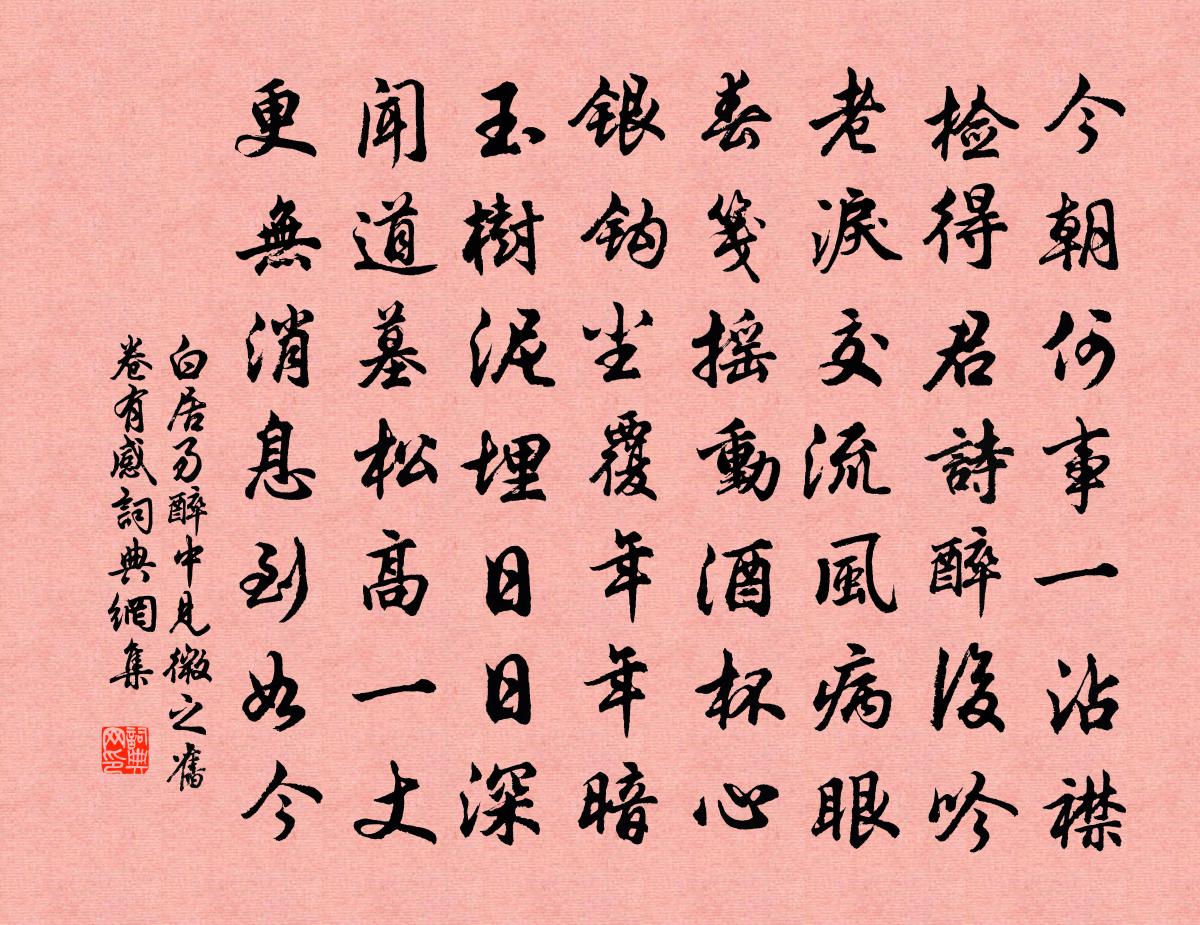 今朝何事一沾襟
检得君詩醉後吟
老淚交流風病眼
春箋摇動酒杯心
銀鈎塵覆年年暗
玉樹泥埋日日深
聞道墓松高一丈
更無消息到如今
白居易醉中見微之舊
卷有感詞典網集
詞典
网印